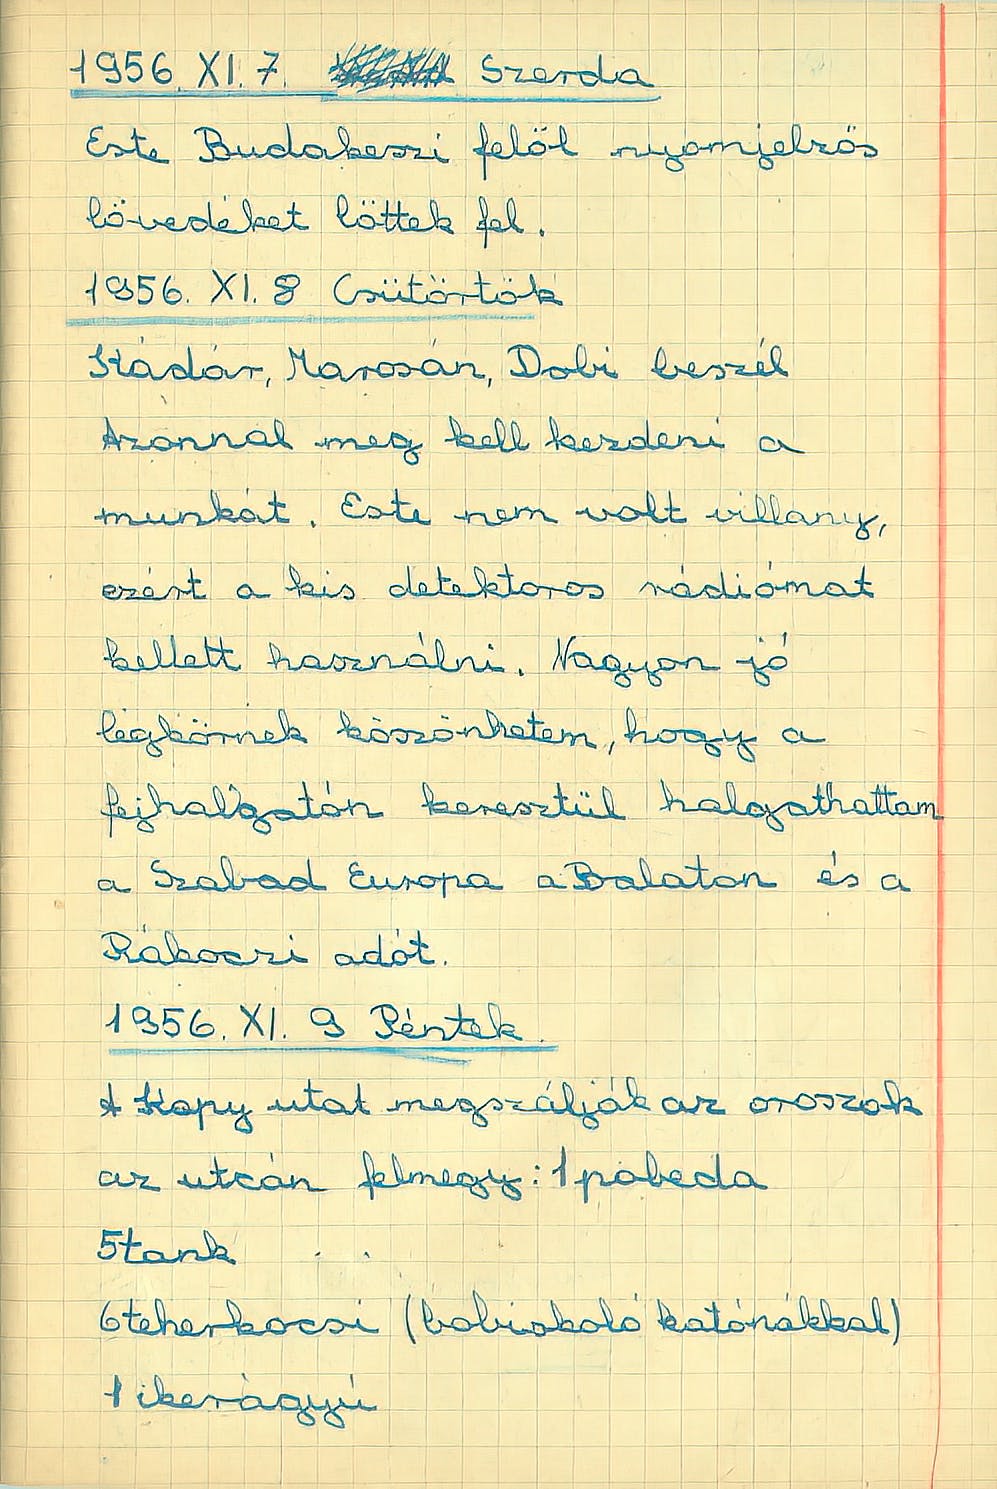 1956. XI. 7. Szerda
Este Budakeszi felől nyomjelzős
lövedéket löttek fel.
1956. XI. 8 Csütörtök
Kádár, Marosán, Dobi beszél
Azonnal meg kell kezdeni a
munkát. Este nem volt villany,
ezért a kis detektoros rádiómat
kellett használni. Nagyon jó
légkörnek köszönhetem, hogy a
fejhalgatón keresztül halgathattam
a Szabad Europa a Balaton és a
Rákoczi adót.
1956. XI. 9 Péntek.
A Kapy utat megszálják az oroszok
az utcán felmegy: 1 pobeda
5 tank
6 teherkocsi (bobiskoló katonákkal)
1 ikerágyú